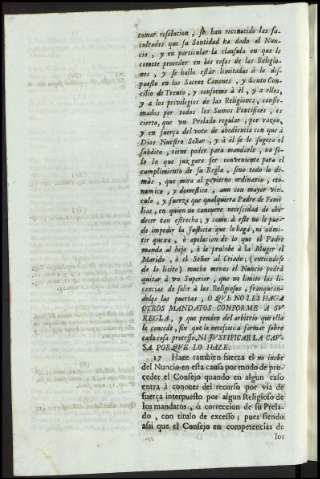 tomar resolucion, se han reconocido las fa-
cultades que su Santidad ha dado al Nun-
cio, y en particular la clausula en que le
comete proceder en las cosas de las Religio-
nes, y se halla estàr limitadas à lo dis-
puesto en los Sacros Canones, y Santo Con-
cilio de Trento, y conforme à èl, y a ellos,
y a los privilegios de las Religiones, confir-
mados por todos los Sumos Pontifices, es
cierto, que un Prelado regular, por razon,
y en fuerça del voto de obediencia con que à
Dios Nuestro Señor, y à èl se le sugeta el
subdito, tiene poder para mandarle, no so-
lo lo que juzgare ser conveniente para el
cumplimiento de su Regla, sino todo lo de-
màs, que mira al govierno ordinario, eco-
nomico, y domestico, aun con mayor vin-
culo, y fuerça que qualquiera Padre de Fami-
lias, en quien no concurre necessidad de obe-
decer tan estrecha; y como à este no le pue-
de impedir la Justicia que lo haga, ni ad-
mitir quexa, ò apelacion de lo que el Padre
manda al hijo, ò le prohibe à la Muger el
Marido, ò el Señor al Criado; (entendiose
de lo licito) mucho menos el Nuncio podrà
quitar à un Superior, que no limite las li-
cencias de salir à los Religiosos, franquean-
doles las puertas, O QUE NO LES HAGA
OTROS MANDATOS CONFORME A SU
REGLA, y que penden del arbitrio que ella
le concede, sin que le necessite a formar sobre
cada cosa processo, NI JUSTIFICAR LA CAU-
SA POR QUE LO HAZE.
17 Haze tambien fuerça el no inibir
del Nuncio en esta causa por modo de pro-
ceder el Consejo quando en algun caso
entra à conocer del recurso por via de
fuerça interpuesto por algun Religioso de
los mandatos, ù correccion de su Prela-
do, con titulo de excesso; pues siendo
assi que el Consejo en competencias de
los